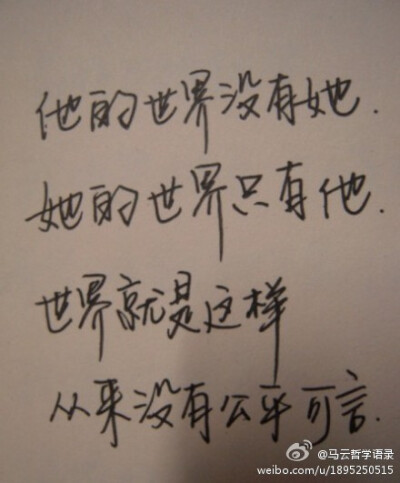 他的世界没有她.
她的世界只有他.
世界就是这样
从来没有公平可言.
@马云哲学语录
weibo.com/u/1895250515